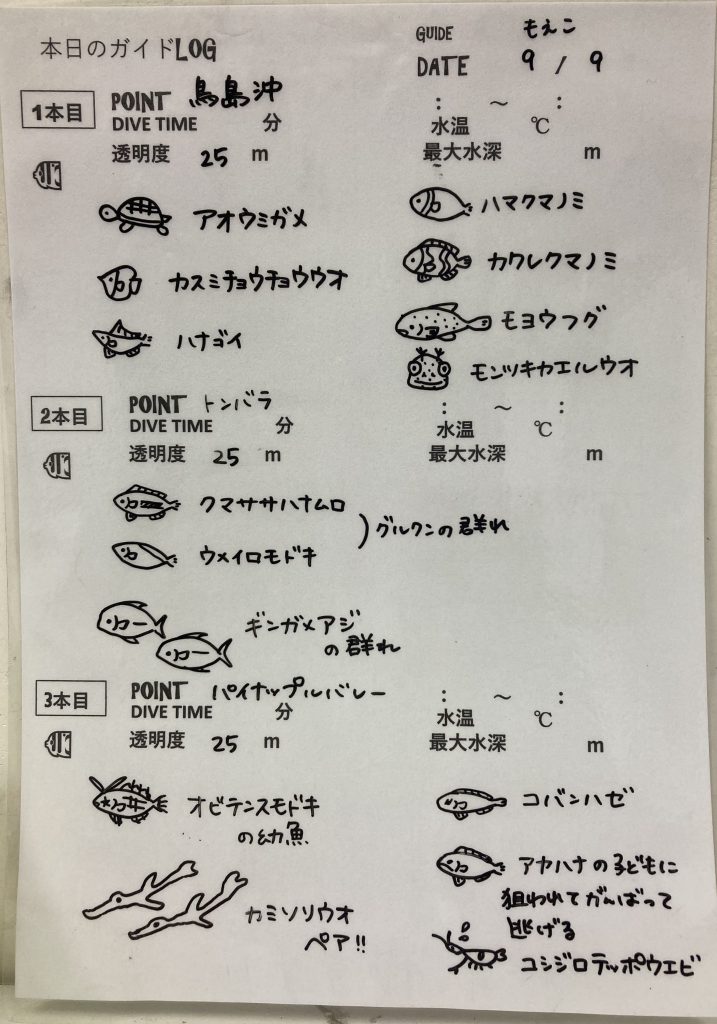 本日のガイドLOG
GUIDE もえこ
DATE 9 / 9
1本目
POINT 鳥島沖
DIVE TIME 分
透明度 25 m
: ～ :
水温 ℃
最大水深 m
アオウミガメ
カスミチョウチョウウオ
ハナゴイ
ハマクマノミ
カクレクマノミ
モヨウフグ
モンツキカエルウオ
2本目
POINT トンバラ
DIVE TIME 分
透明度 25 m
: ～ :
水温 ℃
最大水深 m
クマササハナムロ
ウメイロモドキ
グルクンの群れ
ギンガメアジ
の群れ
3本目
POINT パイナップルバレー
DIVE TIME 分
透明度 25 m
: ～ :
水温 ℃
最大水深 m
オビテンスモドキ
の幼魚
カミソリウオ
ペア!!
コバンハゼ
アヤハナの子どもに
狙われてがんばって
逃げる
コシジロテッポウエビ